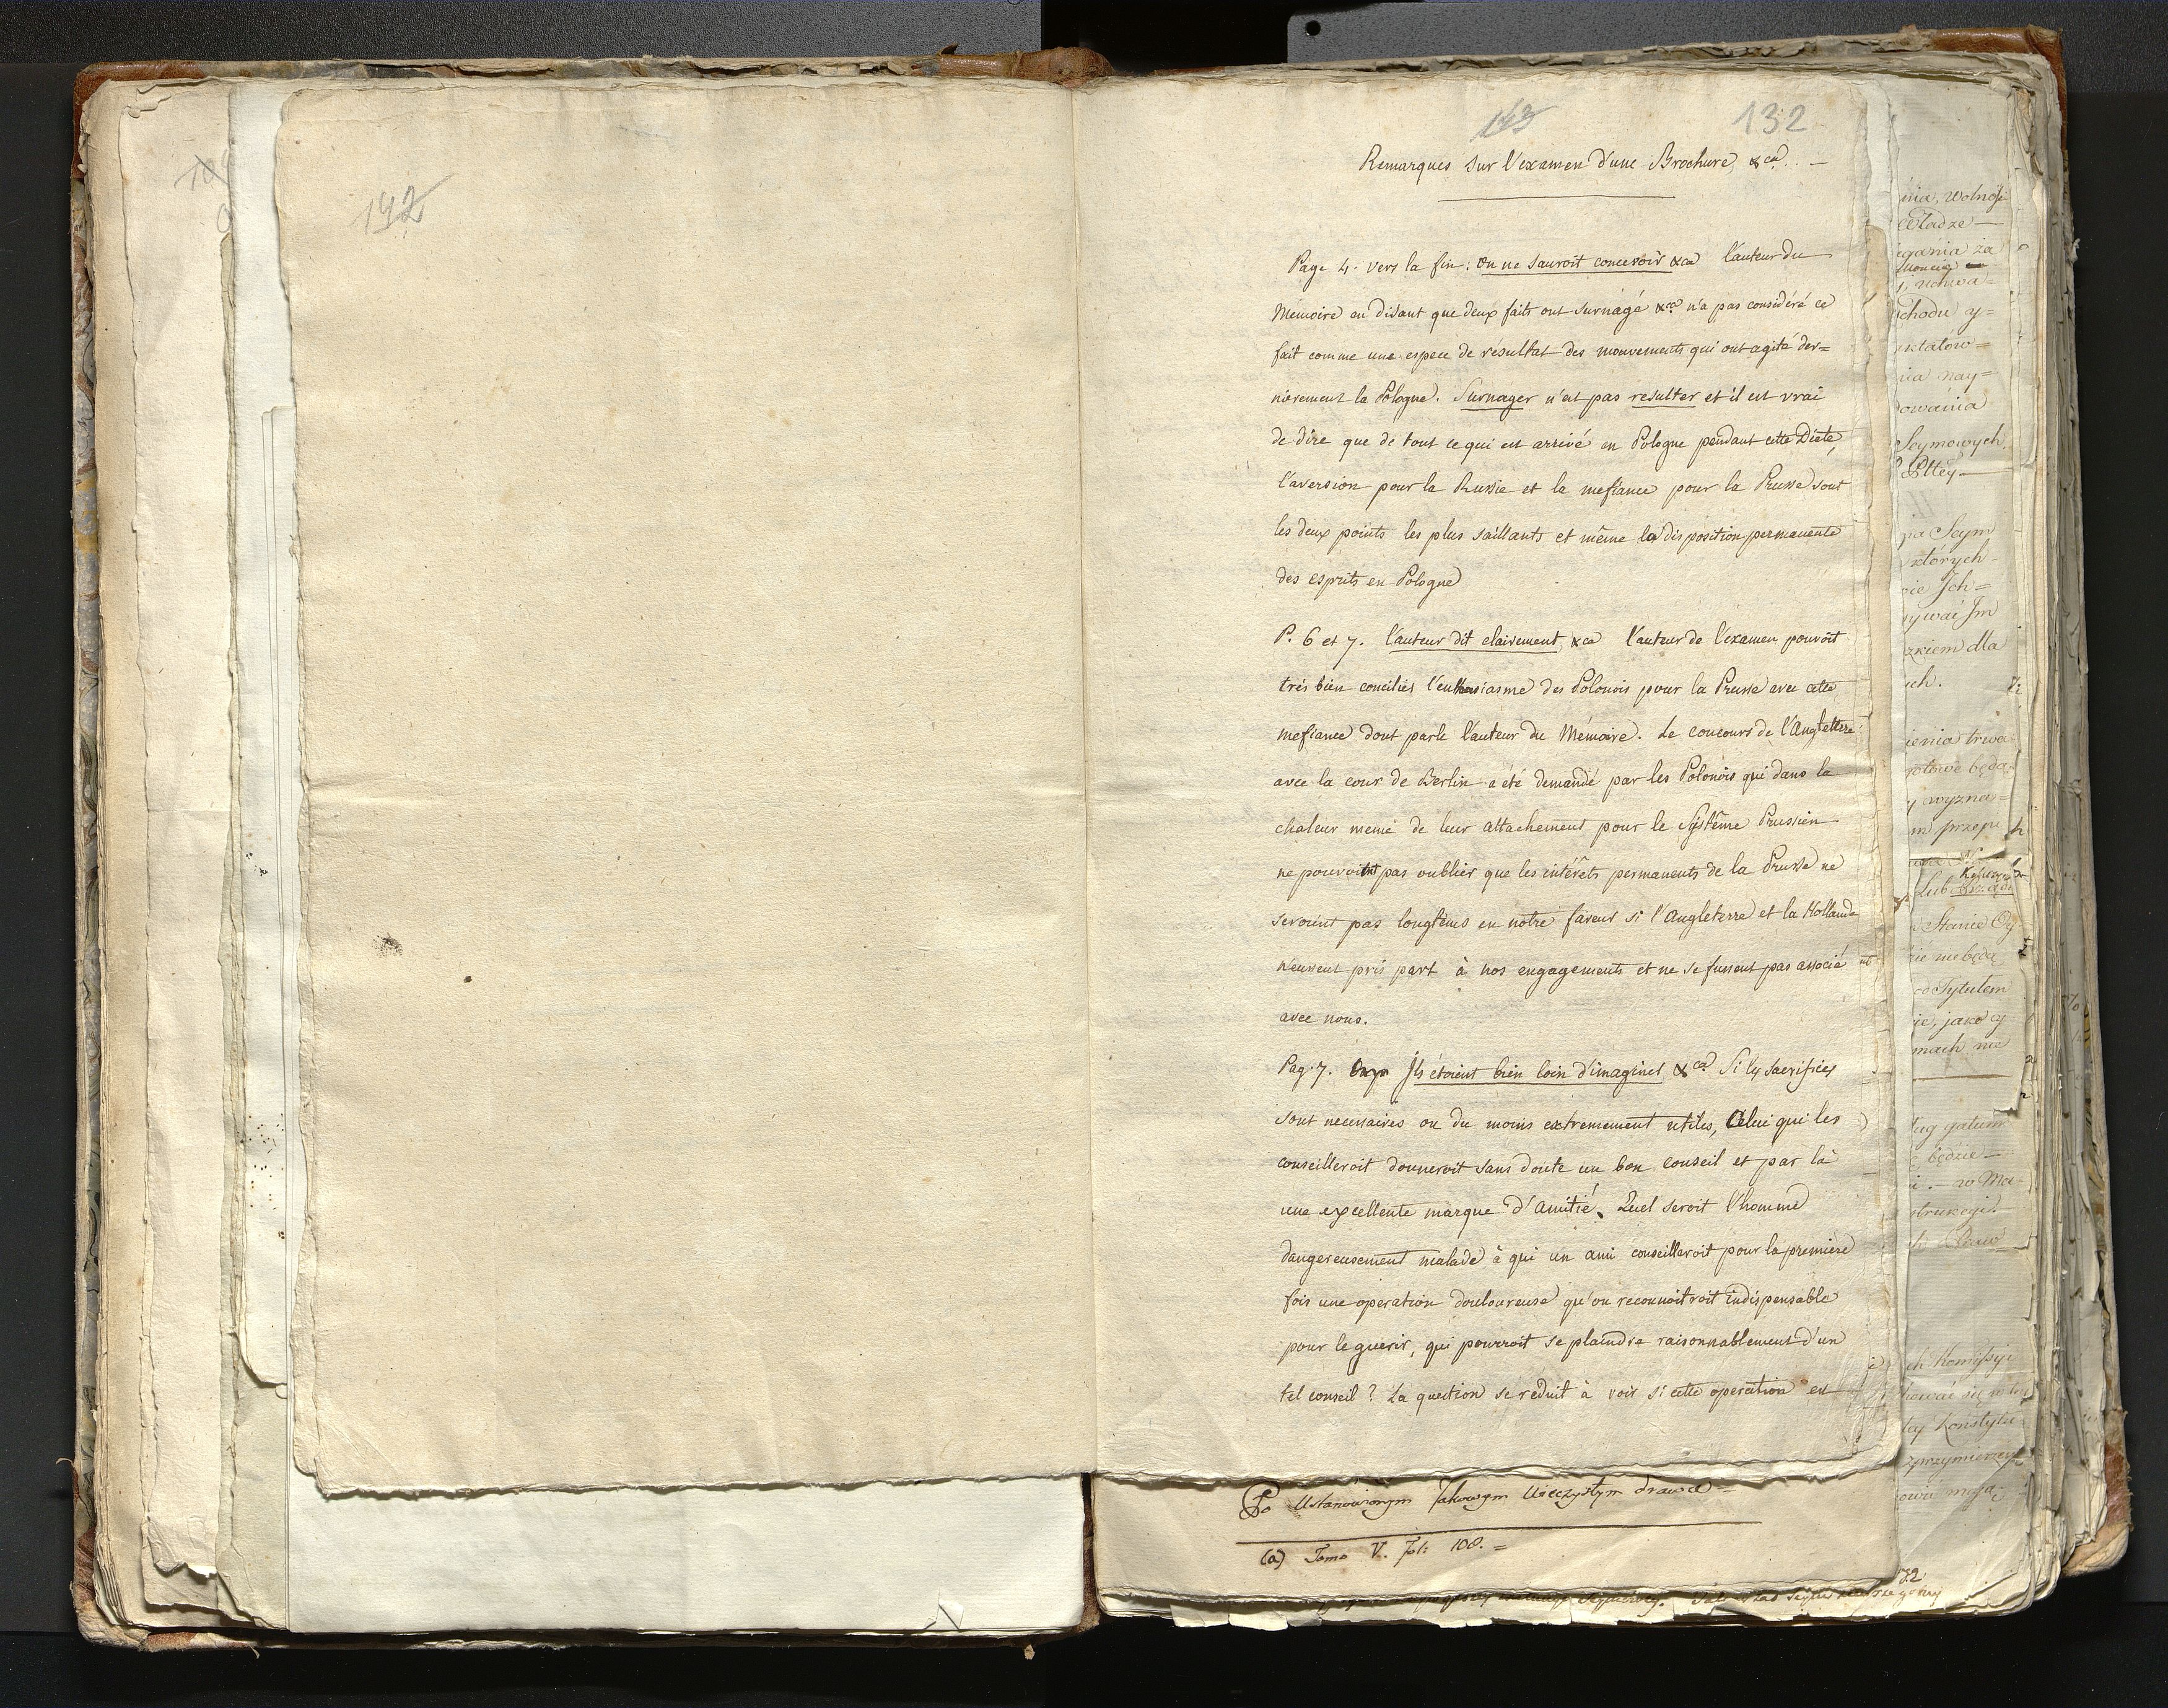 142
143
132
Remarques sur l'examen d'une Brochure, &ca. . —
Page 4. vers la fin : on ne sauroit concevoir &ca l'auteur du
Mémoire en disant que deux faits ont surnagé &ca n'a pas considéré ce
fait comme une espece de résultat des mouvements qui ont agité der=
nierement la Pologne. Surnager n'est pas resulter et il est vrai
de dire que de tout ce qui est arrivé en Pologne pendant cette Diete,
l'aversion pour la Russie et la mefiance pour la Prusse sont
les deux points les plus saillants et même la disposition permanente
des esprits en Pologne
P. 6 et 7. l'auteur dit clairement, &ca l'auteur de l'examen pouvoit
très bien concilier l'enthousiasme des Polonois pour la Prusse avec cette
mefiance dont parle l'auteur du Mémoire. Le concours de l'Angleterre
avec la cour de Berlin a été demandé par les Polonois qui dans la
chaleur meme de leur attachement pour le Systême Prussien
ne pouvoient pas oublier que les intérêts permanents de la Prusse ne
seroient pas longtems en notre faveur si l'Angleterre et la Hollande
n'eussent pris part à nos engagements et ne se fussent pas associé
avec nous.
Pag. 7. Ils étoient bien loin d'imaginer &ca Si les sacrifices
sont necessaires ou du moins extremement utiles, Celui qui les
conseilleroit donneroit sans doute un bon conseil et par là
une excellente marque d'Amitié. Quel seroit l'homme
dangereusement malade à qui un ami conseilleroit pour la premiere
fois une operation douloureuse qu'on reconnoitroit indispensable
pour le guerir, qui pourroit se plaindre raisonnablement d'un
tel conseil ? La question se réduit à voir si cette operation est
Po Ustanowionym Takowym Wieczystym
(a) Tomo V. fol: 108. =
nia, Wolnoś
Seymowych
na Seym
których
zkiem dla
wyzna=
Tytułem
będzie
Komissyi
72